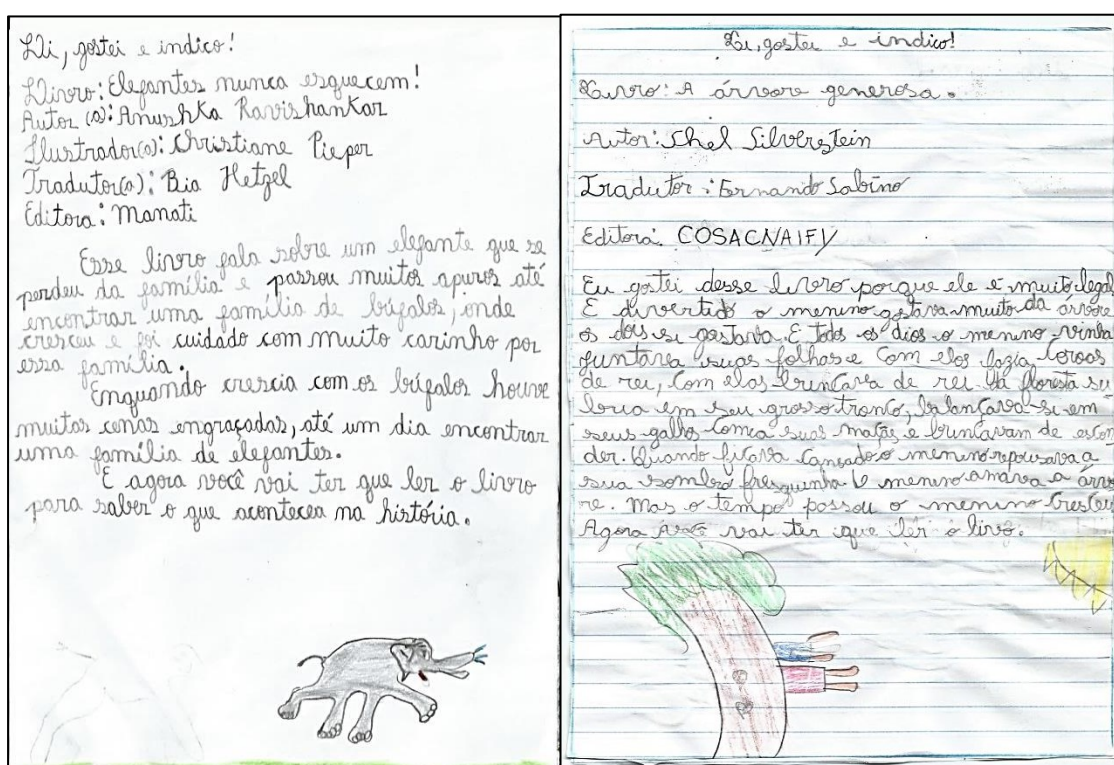 Li, gostei e indico!
Livro: Elefantes nunca esquecem!
Autor (a): Anushka Ravishankar
Ilustrador(a): Christiane Pieper
Tradutor(a): Bia Hetzel
Editora: Manati
Esse livro fala sobre um elefante que se
perdeu da família e passou muitos apuros até
encontrar uma família de búfalos, onde
cresceu e foi cuidado com muito carinho por
essa família.
Enquando crescia com os búfalos houve
muitas cenas engraçadas, até um dia encontrar
uma família de elefantes.
E agora você vai ter que ler o livro
para saber o que aconteceu na história.
Li, gostei e indico!
Livro: A árvore generosa.
Autor: Shel Silverstein
Tradutor: Fernando Sabino
Editora: COSACNAIFY
Eu gostei desse livro porque ele é muito legal
E divertido o menino gostava muito da árvore
os dois se gostava. E todos os dias o menino vinha
juntava suas folhas e com elas fazia coroas
de rei, com elas brincava de rei da floresta su
bia em seu grosso tronco, balançava-se em
seus galhos comia suas maçãs, e brincavam de escon
der. Quando ficava cansado o menino repousava a
sua sombra fresquinha O menino amava a árvo
re. Mas o tempo passou o menino cresceu
Agora você vai ter que ler o livro.